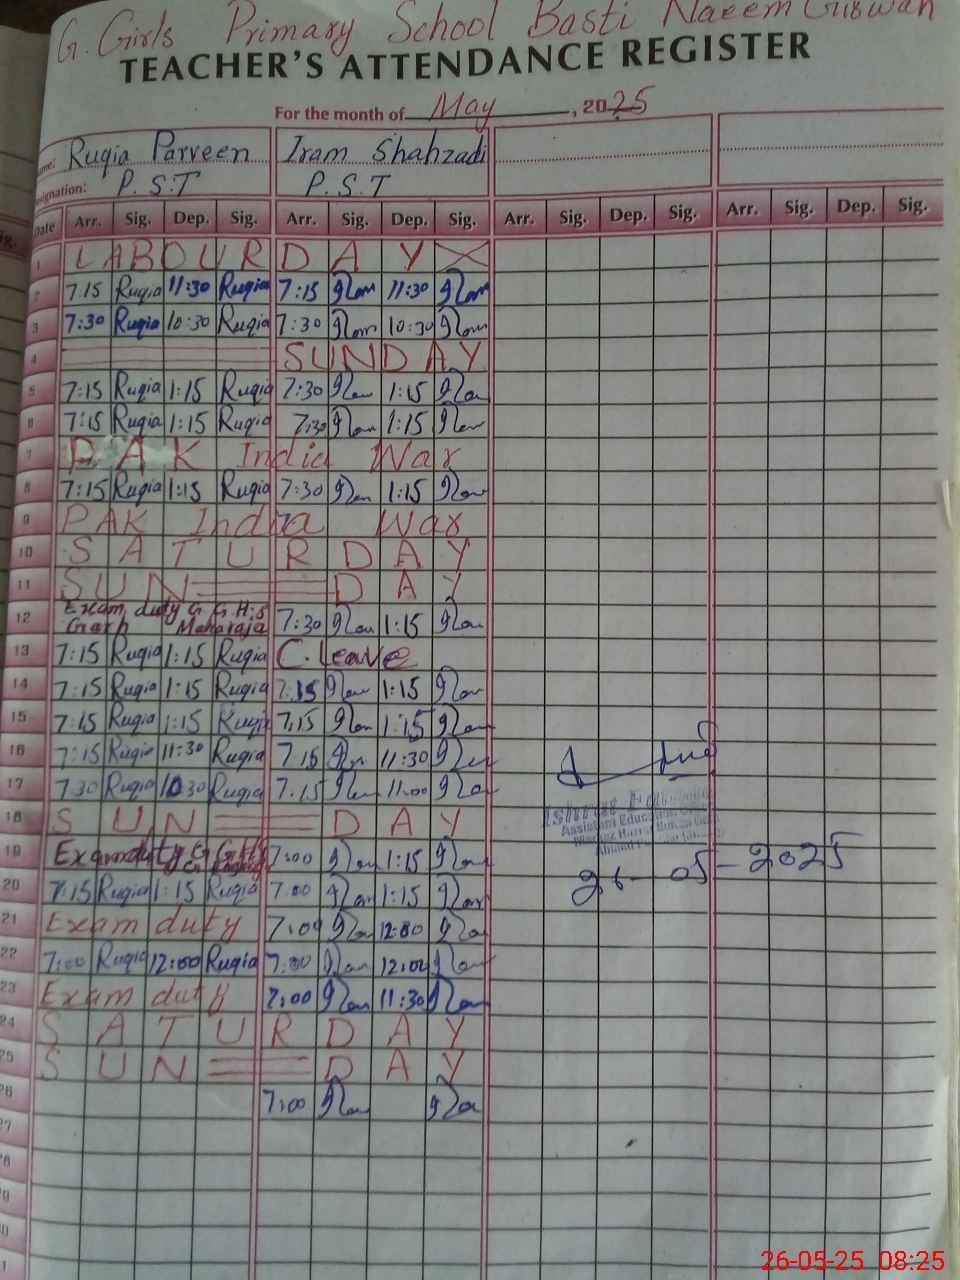 G. Girls Primary School Basti Naeem Giswan
TEACHER'S ATTENDANCE REGISTER
For the month of May, 2025
Name: Ruqia Parveen Iram Shahzadi
Designation: P.S.T P.S.T
Date Arr. Sig. Dep. Sig. Arr. Sig. Dep. Sig. Arr. Sig. Dep. Sig. Arr. Sig. Dep. Sig.
1 LABOUR DAY
2 7:15 Ruqia 11:30 Ruqia 7:15 11:30
3 7:30 Ruqia 10:30 Ruqia 7:30 10:30
4 SUNDAY
5 7:15 Ruqia 1:15 Ruqia 7:30 1:15
6 7:15 Ruqia 1:15 Ruqia 7:30 1:15
7 PAK India War
8 7:15 Ruqia 1:15 Ruqia 7:30 1:15
9 PAK India War
10 SATURDAY
11 SUN DAY
12 Exam duty G.G.H.S 7:30 1:15
Garh Maharaja
13 7:15 Ruqia 1:15 Ruqia C. Leave
14 7:15 Ruqia 1:15 Ruqia 7:15 1:15
15 7:15 Ruqia 1:15 Ruqia 7:15 1:15
16 7:15 Ruqia 11:30 Ruqia 7:15 11:30
17 7:30 Ruqia 10:30 Ruqia 7:15 11:00
18 SUN DAY
Assistant Education
19 Exam duty 7:00 1:15
26-05-2025
20 7:15 Ruqia 1:15 Ruqia 7:00 1:15
21 Exam duty 7:00 12:00
22 7:00 Ruqia 12:00 Ruqia 7:00 12:00
23 Exam duty 7:00 11:30
24 SATURDAY
25 SUN DAY
26 7:00
27
28
29
30
31
26-05-25 08:25